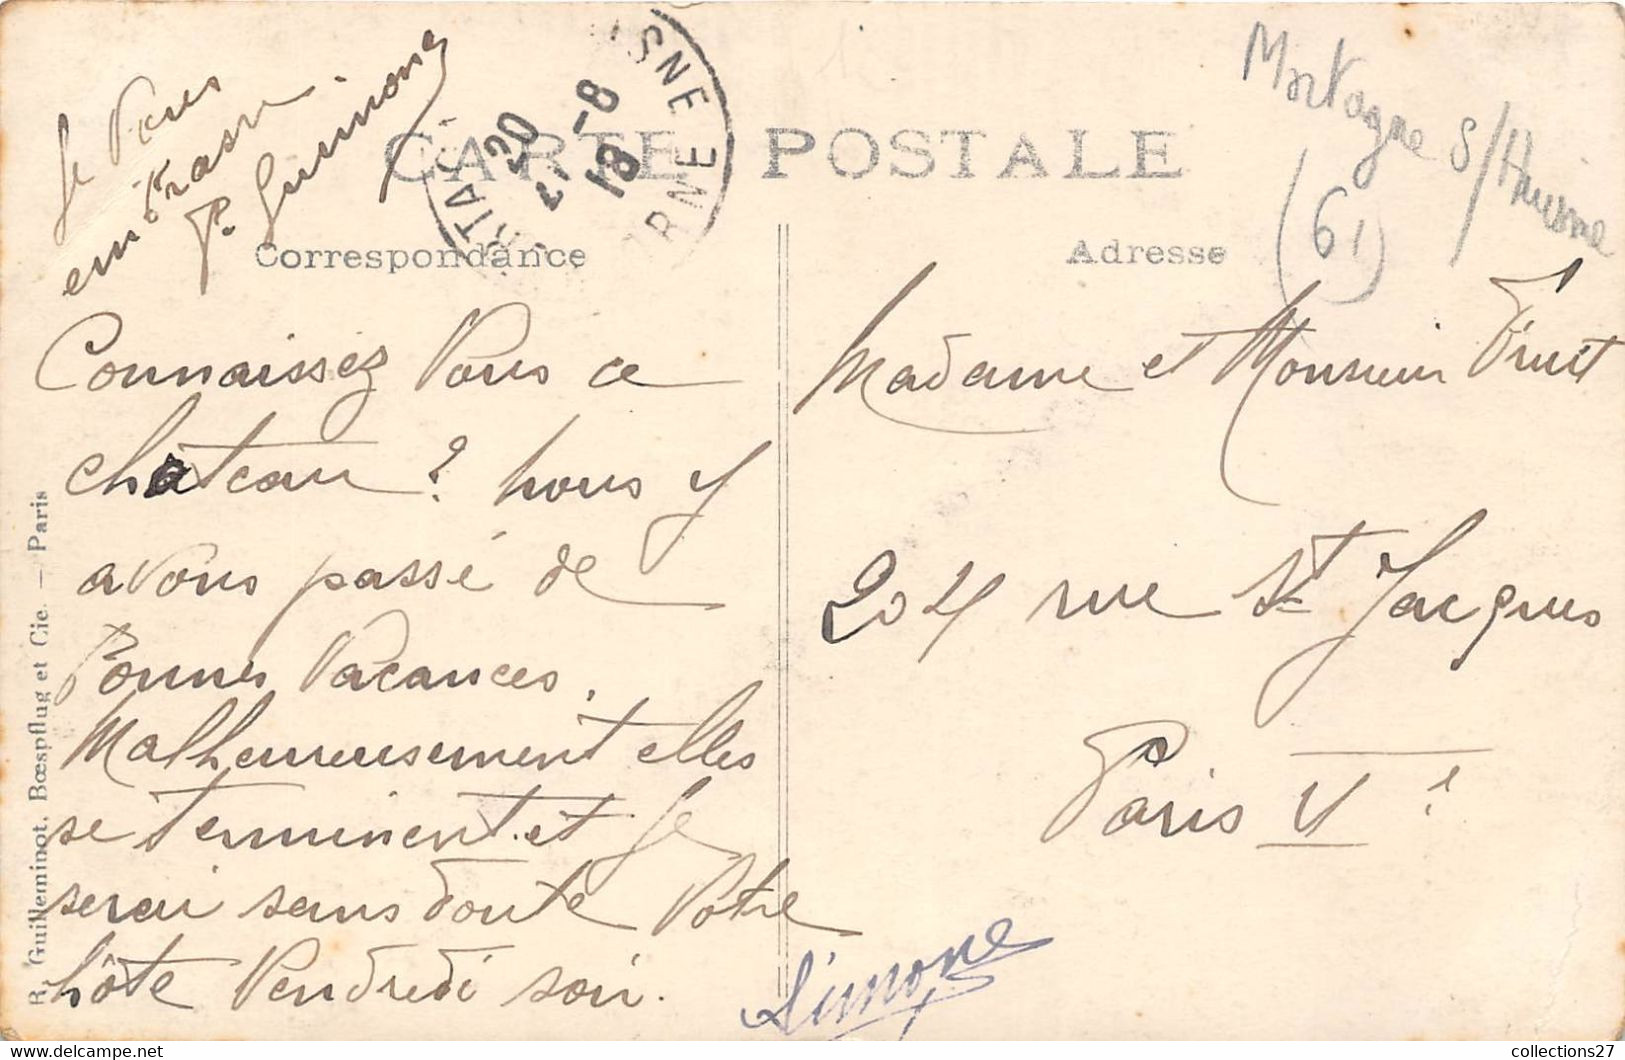 Je Vous
embrasse
P. Guimond
CARTE POSTALE
Correspondance
Adresse
20
27 -8
13
Mortagne s/Huisne
(61)
Connaissez Vous ce
château ? nous y
avons passé de
bonnes Vacances.
Malheureusement elles
se terminent et Je
serai sans doute Votre
hôte Vendredi soir.
Simone
Madame et Monsieur Fruit
204 rue St Jacques
Paris Ve
R. Guilleminot, Bœspflug et Cie. — Paris
collections27